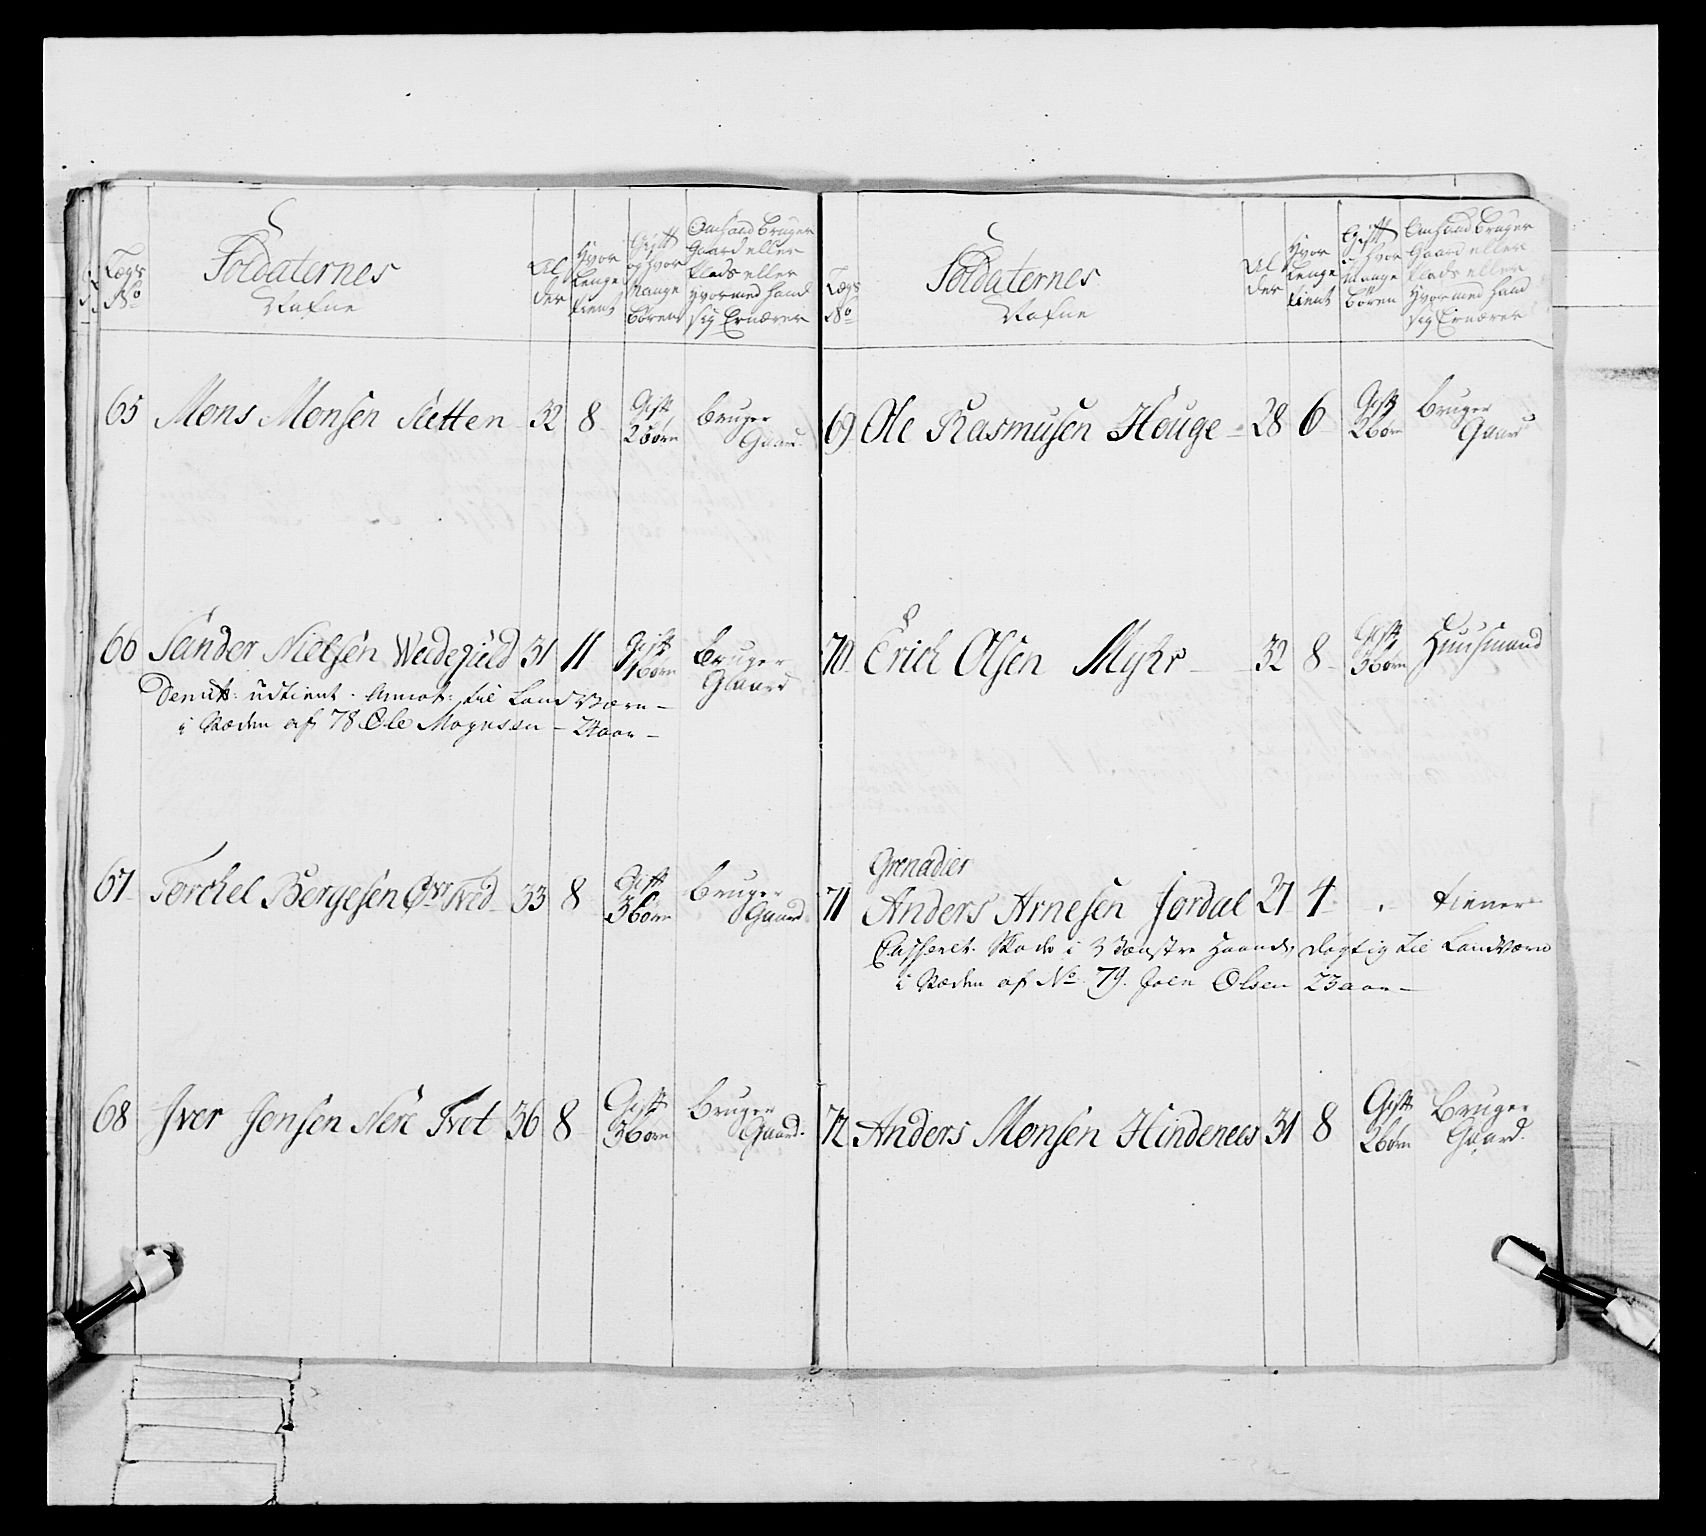 Lægs No
Soldaternes Nafne
Alder
Hvor Lenge tient
Gift og hvor Mange Börn
Om hand bruger Gaard eller Plads eller Hvormed hand sig Ernærer
65 Mons Monsen Sletten 32 8 Gift 2 börn bruger Gaard
66 Sander Nielsen 31 11 Gift 1 börn Bruger Gaard
udtient. Annot: til Land Værn
i Stæden af 78 Ole Mognesen 24 aar
67 Torchel Bergesen Øvr Tved 33 8 Gift 3 börn bruger Gaard
68 Iver Jensen Nere Tvet 36 8 Gift 3 börn bruger Gaard
Lægs No
Soldaternes Nafne
Alder
Hvor Lenge tient
Gift og hvor Mange Börn
Om hand bruger Gaard eller Plads eller Hvormed hand sig Ernærer
69 Ole Rasmusen Houge 28 6 Gift 2 börn bruger Gaard
70 Erich Olsen Myhr 32 8 Gift 3 börn Huusmand
Grenadier
71 Anders Arnesen Jordal 27 4 tiener
Casseret Skade i Venstre Haand, dygtig til Landværn
i Stæden af No 79. Joen Olsen 23 aar
72 Anders Monsen Hindenees 31 8 Gift 2 börn Bruger Gaard